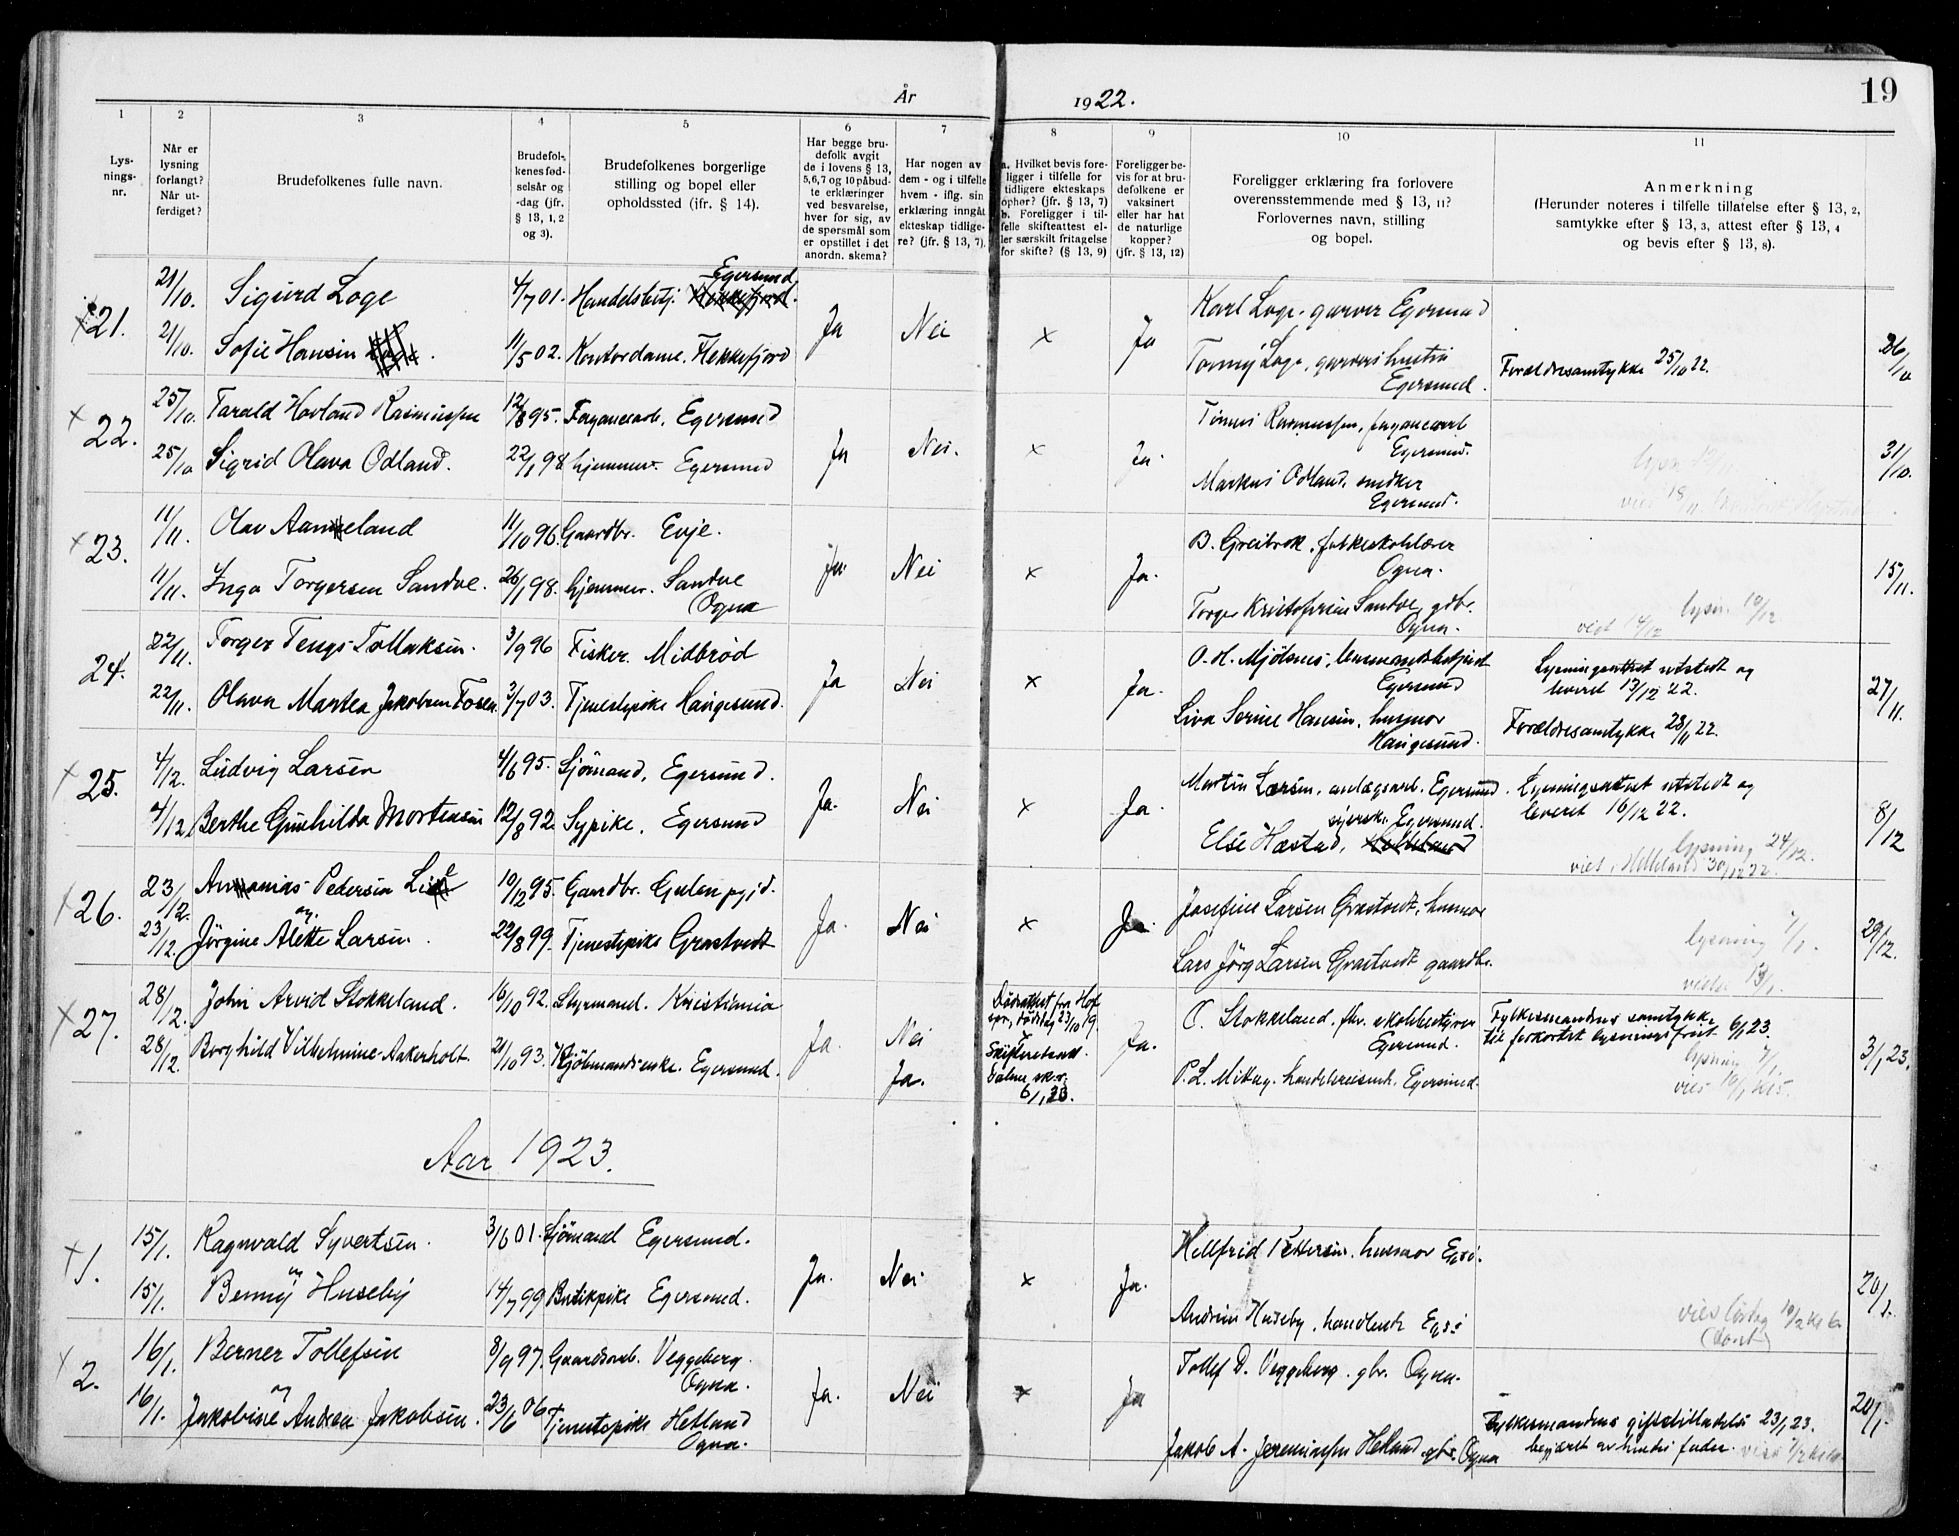 År 1922.
19
1 2 3 4 5 6 7 8 9 10 11
Lys-
nings-
nr.
Når er
lysning
forlangt?
Når ut-
ferdiget?
Brudefolkenes fulle navn.
Brudefol-
kenes fød-
selsår og
-dag (jfr.
§ 13, 1, 2
og 3).
Brudefolkenes borgerlige
stilling og bopel eller
opholdssted (jfr. § 14).
Har begge bru-
defolk avgit
de i lovens § 13,
5,6,7 og 10 påbud-
te erklæringer
ved besvarelse,
hver for sig, av
de spørsmål som
er opstillet i det
anordn. skema?
Har nogen av
dem - og i tilfelle
hvem - iflg. sin
erklæring inngått
ekteskap tidlige-
re? (jfr. § 13, 7).
a. Hvilket bevis fore-
ligger i tilfelle for
tidligere ekteskaps
ophør? (jfr. § 13, 7)
b. Foreligger i til-
felle skifteattest el-
ler særskilt fritagelse
for skifte? (§ 13, 9)
Foreligger be-
vis for at bru-
defolkene er
vaksinert
eller har hat
de naturlige
kopper?
(jfr. § 13, 12)
Foreligger erklæring fra forlovere
overensstemmende med § 13, 11?
Forlovernes navn, stilling
og bopel.
Anmerkning
(Herunder noteres i tilfelle tillatelse efter § 13, 2,
samtykke efter § 13, 3, attest efter § 13, 4
og bevis efter § 13, 8).
21. 21/10. Sigurd Loge 4/7 01. Handelsbetj. Egersund
21/10. Sofie Hansen 11/5 02. Kontordame. Flekkefjord
Ja Nei × Ja
Karl Loge, garver Egersund
Tonny Loge, garvers hustru
Egersund.
Forældresamtykke 25/10 22.
26/10
22. 25/10. Tarald Hovland Rasmussen 12/8 95. Fayancearb. Egersund
25/10 Sigrid Olava Odland. 22/1 98 hjemmev. Egersund
Ja Nei. × Ja.
Rasmussen, fayancearb
Egersund.
Markus Odland, snedker
Egersund.
31/10.
23. 11/11. Olav Aaneland 11/10 96. Gaardbr. Evje.
11/11. Inga Torgersen Sandve. 26/1 98. hjemmev. Sandve
Ogna
Ja. Nei × Ja.
B. Greibrok, folkeskolelærer
Ogna.
Torger Kristofersen Sandve, gdbr.
Ogna.
lysn. 10/12
viet 14/12
15/11.
24. 22/11. Torger Tengs Tollaksen. 3/9 96 Fisker. Midbrød
22/11. Olava Martea Jakobsen Fosen 3/7 03. Tjenestepike Haugesund.
Ja Nei × Ja.
O. H. Mjølsnes, lensmandsbetjent
Egersund
Liva Serine Hansen, husmor
Haugesund.
Lysningsattest utstedt og
leveret 13/12 22.
Forældresamtykke 28/11 22.
27/11.
25. 4/12. Ludvig Larsen 4/6 95. Sjømand, Egersund.
4/12. Berthe Gunhilda Mortensen 12/8 92. Sypike, Egersund
Ja. Nei × Ja.
Martin Larsen, anlægsarb. Egersund.
syersk. Egersund.
Else Hæstad,
Lysningsattest utstedt og
leveret 16/12 22.
lysning 24/12.
viet i Helleland 30/12 22.
8/12
26. 23/12. Ananias Pedersen 10/12 95. Gaardbr.
23/12. Jørgine og Alette Larsen. 22/8 99. Tjenestepike Grastvedt
Ja. Nei × Ja.
Josefine Larsen Grastvedt, husmor
Lars Jørg Larsen Grastvedt gaardbr.
lysning 7/1.
viet 13/1.
29/12.
27. 28/12. John Arvid Stokkeland. 16/10 92. Styrmand. Kristiania
28/12. Borghild Vilhelmine Aakerholt. 21/10 93. Egersund.
Ja. Nei
Ja.
Dødsattest fra Hof
spr, dødsdag 23/10 19.
6/1 23.
Ja.
O. Stokkeland, fhv. skolebestyrer
Egersund.
P. L. Mittag, handelsreisende, Egersund.
Fylkesmandens samtykke
til forkortet lysningsfrist 6/1 23.
lysning 7/1.
3/1 23.
Aar 1923.
1. 15/1. Ragnvald Syvertsen. 3/6 01. Sjømand Egersund.
15/1. Benny Huseby 14/7 99 Butikpike Egersund.
Ja. Nei × Ja.
Hellfrid Pettersen, husmor Egs.
Andreas Huseby, handlende Egs.
20/1.
2. 16/1. Berner Tollefsen 8/9 97. Gaardsarb. Veggeberg.
Ogna.
16/1. Jakobine og Andrea Jakobsen. 23/6 06 Tjenestepike Hetland
Ogna.
Ja. Nei × Ja
Tollef D. Veggeberg, gbr. Ogna.
Jakob A. Jeremiassen Hetland gbr. Ogna
Fylkesmandens giftetilladelse 23/1 23.
begjæret av hendes fader.
20/1.